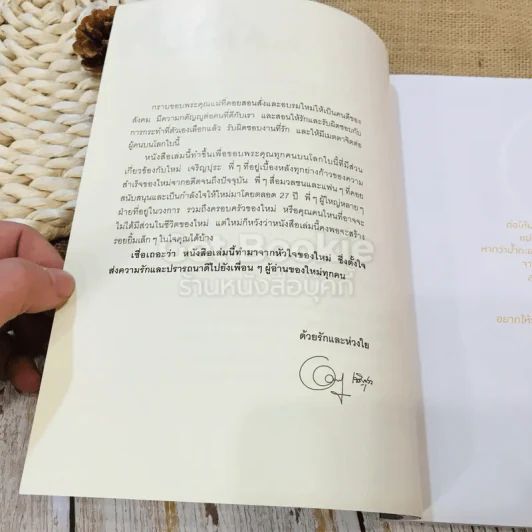 กราบขอบพระคุณแม่ที่คอยสอนสั่งและอบรมใหม่ให้เป็นคนดีของ
สังคม มีความกตัญญูต่อคนที่ดีกับเรา และสอนให้รักและรับผิดชอบกับ
การกระทำที่ตัวเองเลือกแล้ว รับผิดชอบงานที่รัก และให้มีเมตตาจิตต่อ
ผู้คนบนโลกใบนี้
หนังสือเล่มนี้ทำขึ้นเพื่อขอบพระคุณทุกคนบนโลกใบนี้ที่มีส่วน
เกี่ยวข้องกับใหม่ เจริญปุระ พี่ๆ ที่อยู่เบื้องหลังทุกย่างก้าวของความ
สำเร็จของใหม่จากอดีตจนถึงปัจจุบัน พี่ๆ สื่อมวลชนและแฟนๆ ที่คอย
สนับสนุนและเป็นกำลังใจให้ใหม่มาโดยตลอด 27 ปี พี่ๆ ผู้ใหญ่หลายๆ
ฝ่ายที่อยู่ในวงการ รวมถึงครอบครัวของใหม่ หรือคุณคนไหนที่อาจจะ
ไม่ได้มีส่วนในชีวิตของใหม่ แต่ใหม่ก็หวังว่าหนังสือเล่มนี้คงพอจะสร้าง
รอยยิ้มเล็กๆ ในใจคุณได้บ้าง
เชื่อเถอะว่า หนังสือเล่มนี้ทำมาจากหัวใจของใหม่ ซึ่งตั้งใจ
ส่งความรักและปรารถนาดีไปยังเพื่อนๆ ผู้อ่านของใหม่ทุกคน
ร้านหนังสือบุคกี้
ด้วยรักและห่วงใย
อยากให้